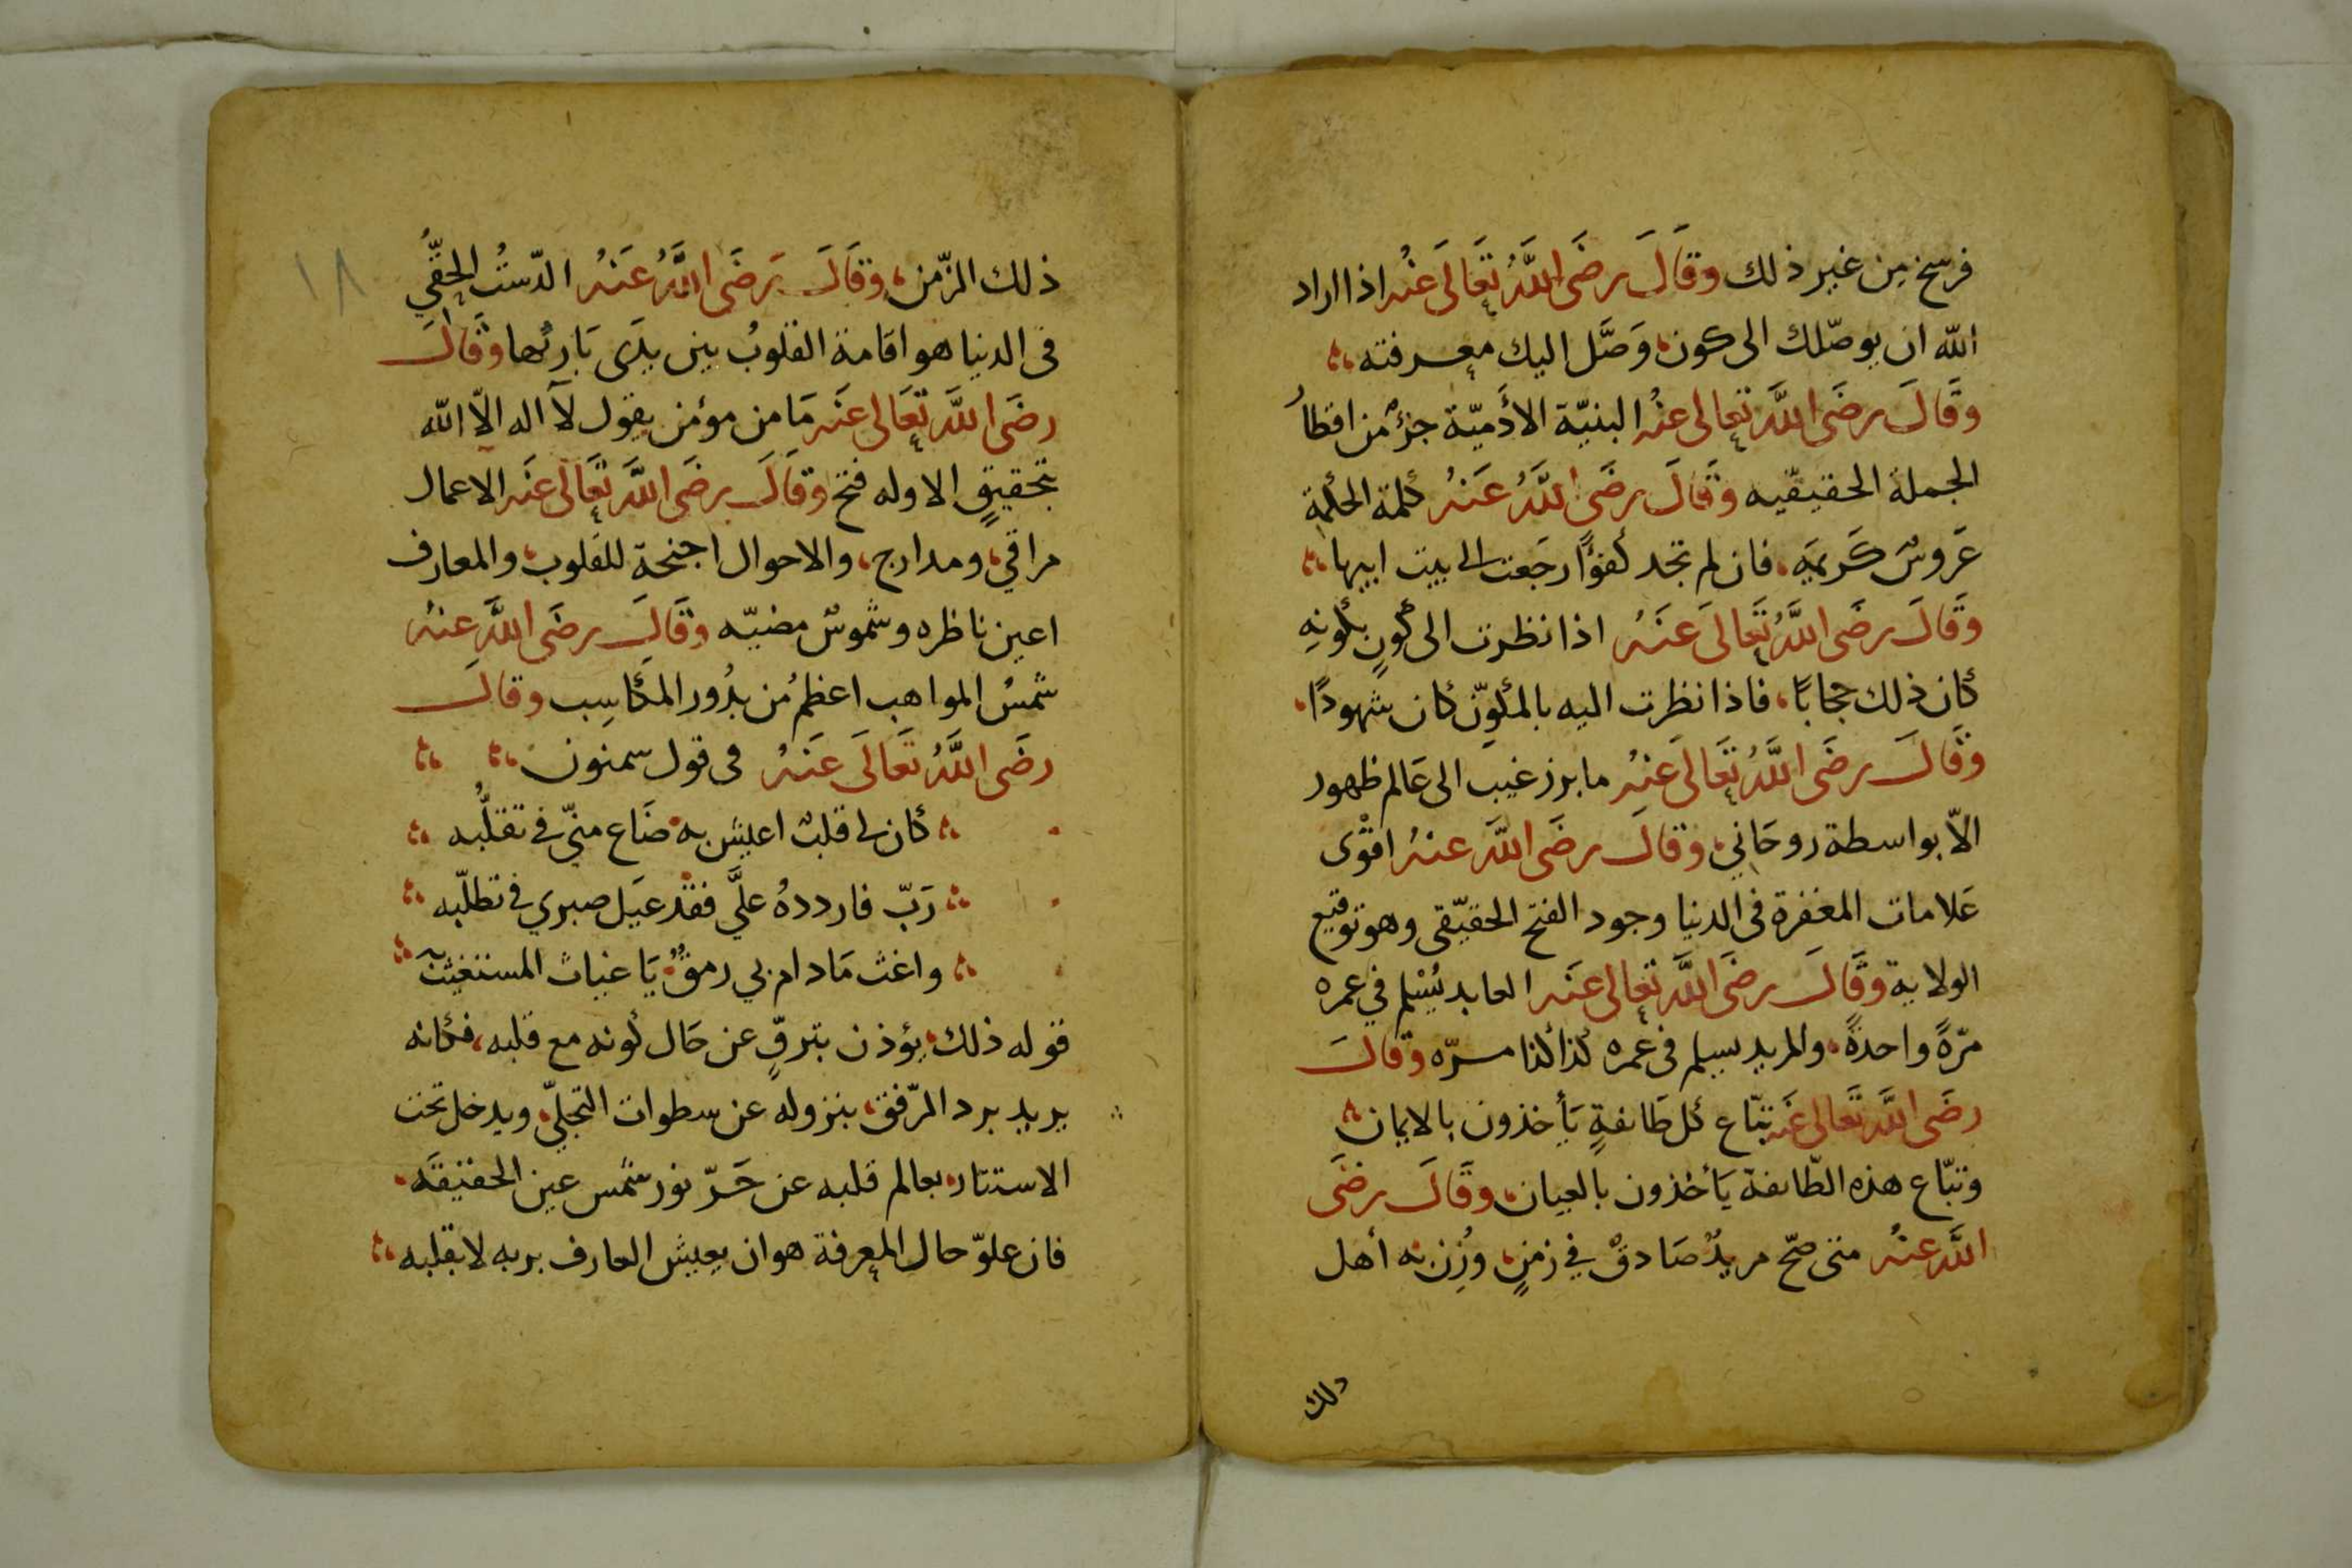 فرسخ مِن غير ذلك وقَالَ رضَى اللَّهُ تعَالَى عنْه اذا اراد
الله ان يوصّلك الى كون، وَصَّل اليك معرفته
وقَالَ رضَى اللَّه تعالى عنْه البنيّة الأدَميّة جزؤ من اقطا
الجملة الحقيقيه وقَالَ رضَى اللَّهُ عَنهُ كلمة الحكمة
عَروسٌ كَريمَه، فان لم تجد كفؤًا رجَعت الى بيت ابيها
وقَالَ رضَى اللَّهُ تعَالَى عَنهُ اذا نظرت الى كَونٍ بكونِهِ
كان ذلك حجابًا، فاذا نظرت اليه بالمكوِّن كان شهودًا
وقَالَ رضَى اللَّهُ تعَالَى عَنهُ ما برز غيب الى عَالم ظهور
الاّ بواسطة روحَاني، وقالَ رضَى اللَّه عنهُ اقوْى
عَلامات المغفرة فى الدنيا وجود الفتح الحقيّقى وهو توقيع
الولاية وقَالَ رضَى اللَّه تعَالى عنَه العابد يُسْلم في عمره
مرّةً واحدةً، والمريد يسلم فى عمره كذا كذا مرّه وقالَ
رضَى اللَّه تعَالى عَنه تبّاع كل طَائفةٍ يَأخذون بالايمان
وتبّاع هذه الطّائفة يَأخذون بالعيان، وقَالَ رضَى
اللَّه عنهُ متى صَحّ مريدٌ صَادقٌ في زمنٍ، وُزِن به أهل
ذلك
١٨
ذلك الزّمن، وقَالَ رَضَى اللَّهُ عَنهُ الدّستُ الحقّي
فى الدنيا هو اقامة القلوبُ بين يدَى بَارئها وقَالَ
رضَى اللَّه تعَالى عنَه مَا من مؤمن يقول لآ اله الاّ الله
بتحقيقٍ الا وله فتح وقَالَ رضَى اللَّه تعَالَى عنَه الاعمال
مراقي، ومدارج، والاحوال اجنحة للقلوب، والمعارف
اعين ناظره وشموسٌ مضيّه وقَالَ رضَى اللَّه عنهُ
شمسُ المواهب اعظمُ من بدُور المكَاسِب وقالَ
رضَى اللَّهُ تعَالَى عَنهُ فى قول سمنون
كان لي قلبٌ اعيش به ضَاع منّي في تقلُّبه
رَبّ فاردده علَّي فقد عيَل صبري في تطلّبه
واغث مَادام بي رمقٌ يَا غياث المستغيث به
قوله ذلك، يؤذن بترقٍّ عن حَال كونه مع قلبه، فكانه
يريد برد الرّفق، بنزوله عن سطوات التجلّي، ويدخل تحت
الاستتار، بعالم قلبه عن حَرّ نور شمس عين الحقيقَه
فان علوّ حال المعرفة هو ان يعيش العارف بربه لا بقلبه